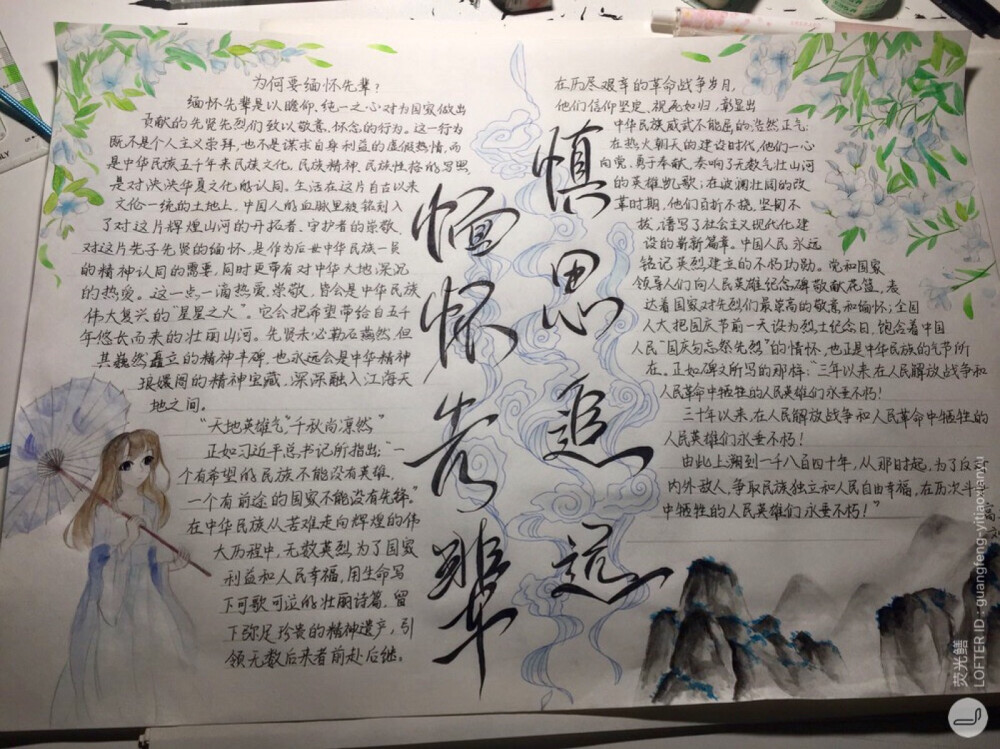 为何要缅怀先辈？
缅怀先辈是以瞻仰、纯一之心对为国家做出
贡献的先贤先烈们致以敬意、怀念的行为。这一行为
既不是个人主义崇拜，也不是谋求自身利益的虚假热情，而
是中华民族五千年来民族文化、民族精神、民族性格的写照，
是对泱泱华夏文化的认同。生活在这片自古以来
文伦一统的土地上，中国人的血脉里被铭刻入
了对这片辉煌山河的开拓者、守护者的崇敬，
对这片先子先贤的缅怀，是作为后世中华民族一员
的精神认同的需要，同时更带有对中华大地深沉
的热爱。这一点一滴热爱、崇敬，皆会是中华民族
伟大复兴的“星星之火”。它会把希望带给自五千
年悠长而来的壮丽山河。先贤未必勒石燕然，但
其巍然矗立的精神丰碑，也永远会是中华精神
琅嬛阁的精神宝藏，深深融入江海天
地之间。
“天地英雄气”“千秋尚凛然”
正如习近平总书记所指出：“一
个有希望的民族不能没有英雄，
一个有前途的国家不能没有先锋。”
在中华民族从苦难走向辉煌的伟
大历程中，无数英烈为了国家
利益和人民幸福，用生命写
下可歌可泣的壮丽诗篇，留
下弥足珍贵的精神遗产，引
领无数后来者前赴后继。
缅怀先辈
慎思追远
在历尽艰辛的革命战争岁月，
他们信仰坚定、视死如归，彰显出
中华民族威武不能屈的浩然正气；
在热火朝天的建设时代，他们一心
向党、勇于奉献，奏响了无数气壮山河
的英雄凯歌；在波澜壮阔的改
革时期，他们百折不挠、坚韧不
拔，谱写了社会主义现代化建
设的崭新篇章。中国人民永远
铭记英烈建立的不朽功勋。党和国家
领导人们向人民英雄纪念碑敬献花篮，表
达着国家对先烈们最崇高的敬意和缅怀；全国
人大把国庆节前一天设为烈士纪念日，饱含着中国
人民“国庆勿忘祭先烈”的情怀，也正是中华民族的气节所
在。正如碑文所写的那样：“三年以来在人民解放战争和
人民革命中牺牲的人民英雄们永垂不朽！
三十年以来，在人民解放战争和人民革命中牺牲的
人民英雄们永垂不朽！
由此上溯到一千八百四十年，从那时起，为了反
内外敌人，争取民族独立和人民自由幸福，在历次斗
中牺牲的人民英雄们永垂不朽！”
荧光鳝
LOFTER ID : guangfeng-yitiaoxianyu